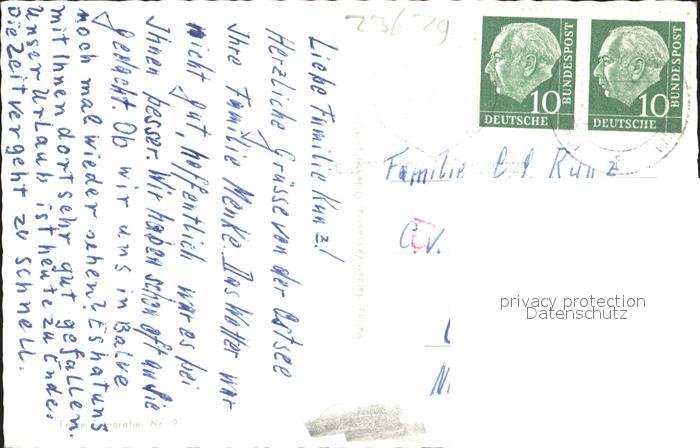 Liebe Familie Kunz!
Herzliche Grüsse von der Ostsee
Ihre Familie Menke. Das Wetter war
nicht gut, hoffentlich war es bei
Ihnen besser. Wir haben schon oft an Sie
gedacht. Ob wir uns in Balve
noch mal wieder sehen? Es hat uns
mit Ihnen dort sehr gut gefallen.
Unser Urlaub ist heute zu Ende.
Die Zeit vergeht zu schnell.
23629
10
DEUTSCHE
BUNDESPOST
10
DEUTSCHE
BUNDESPOST
Familie C. J. Kunz
privacy protection
Datenschutz